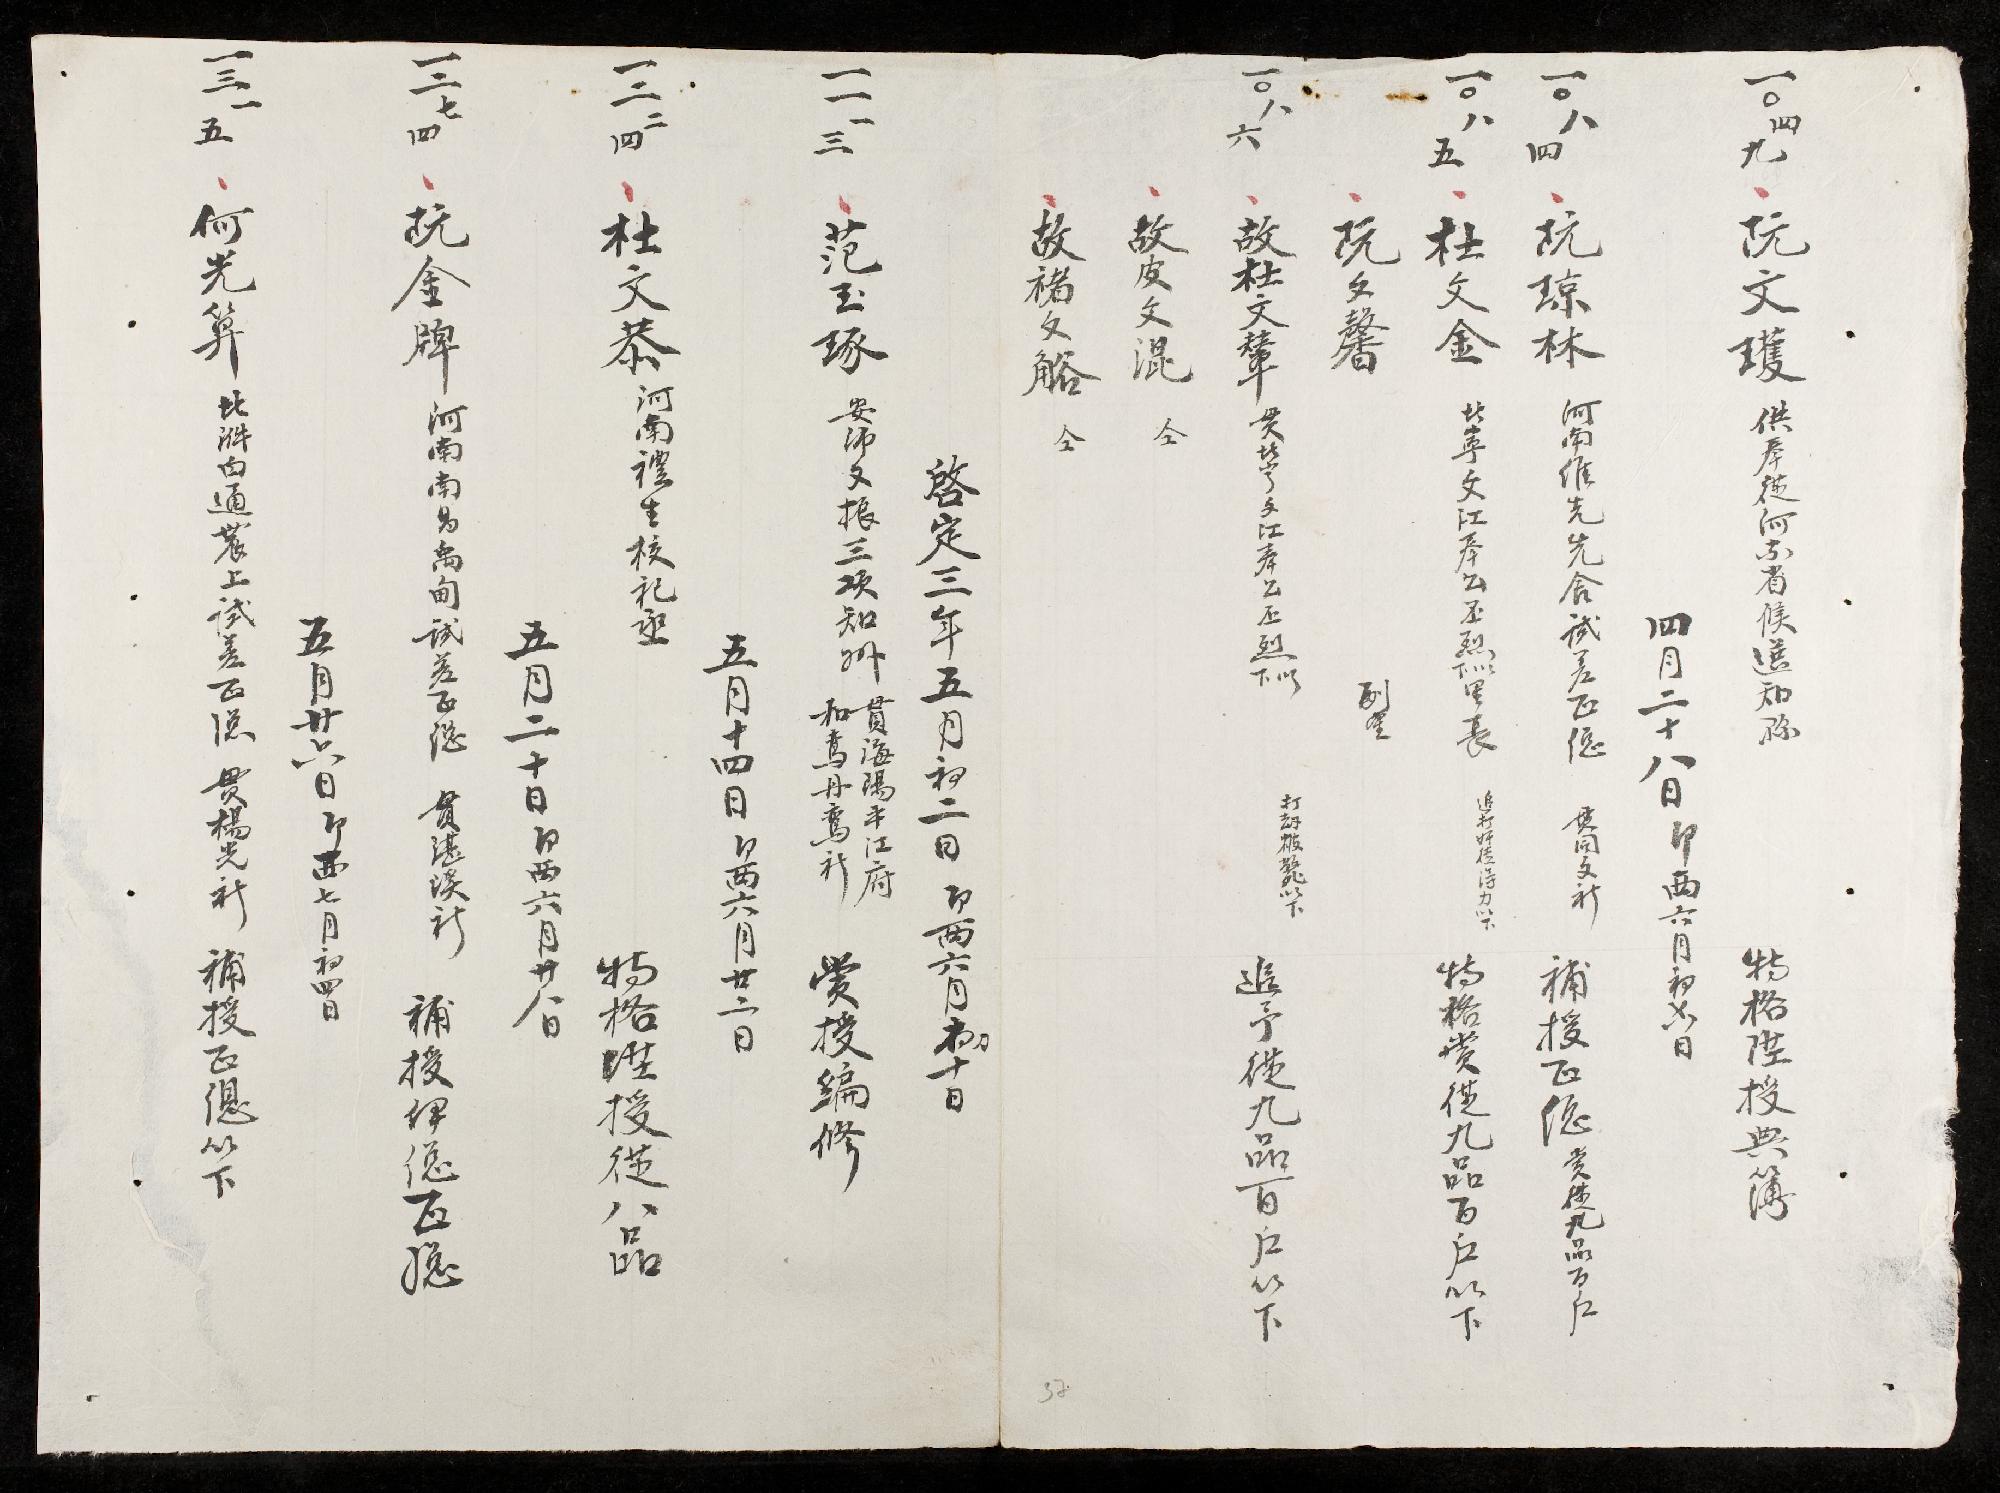 一〇四九 阮文瓁 供奉從河东省候選知縣 特格陞授典簿
四月二十八日 即西六月初六日
一〇八四 阮琼林 河南維先先舍試差正總 貫同文社 補授正總 賞從九品百户
一〇八五 杜文金 北寧文江奉公丕烈以下里長 追打奸徒得力以下 特格賞從九品百户以下
阮文馨 副里
一〇八六 故杜文輦 貫北宁文江奉公丕烈以下 打刼被斃以下 追予從九品百户以下
故皮文混 仝
故褚文觡 仝
啓定三年五月初二日 即西六月初十日
一一一三 范玉琢 安沛文振三項知州 貫海陽平江府和鸾丹鸾社 賞授編修
五月十四日 即西六月廿二日
一二二四 杜文恭 河南禮生校祀丞 特格陞授從八品
五月二十日 即西六月廿八日
一二七四 阮金牌 河南南昌禹甸試差正總 貫湛淡社 補授伊總正總
五月廿六日 即西七月初四日
一三一五 何光算 北𣴓白通農上試差正總 貫楊光社 補授正總以下
37